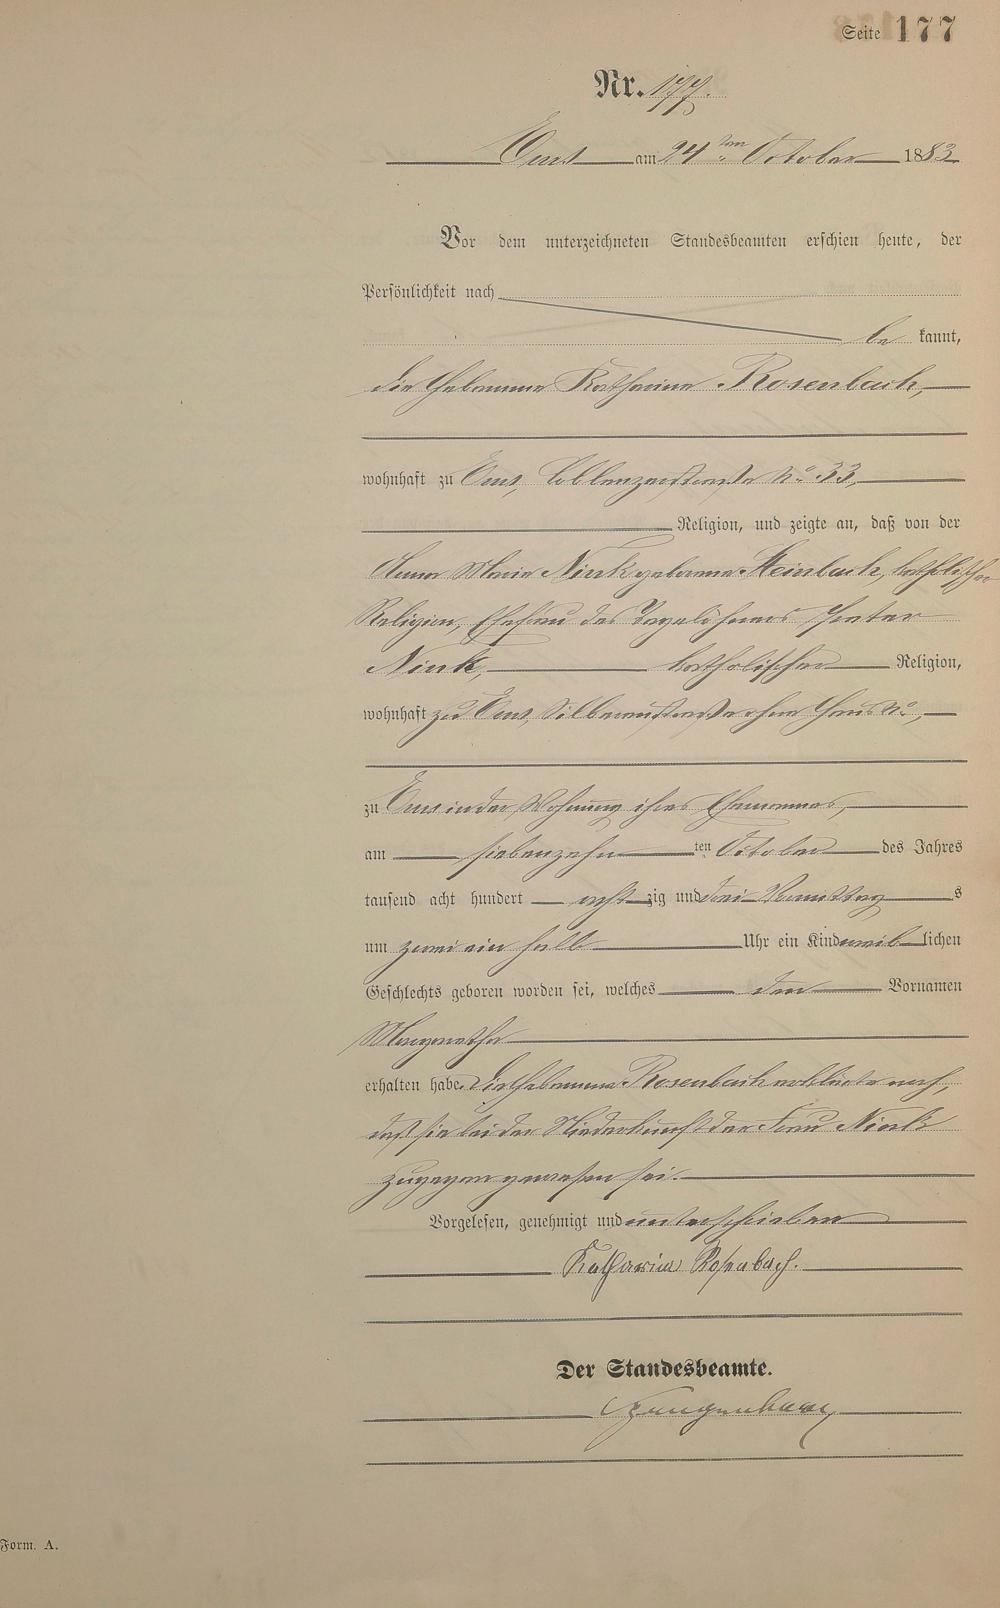 Seite 177
Nr. 177.
Ems am 24ten October 1883
Vor dem unterzeichneten Standesbeamten erschien heute, der
Persönlichkeit nach
be kannt,
die Hebamme Katharina Rosenbach,
wohnhaft zu Ems, Coblenzerstraße No 33,
Religion, und zeigte an, daß von der
Anna Maria Nink geborene Steinbach, katholischer
Religion, Ehefrau des Tagelöhners Peter
Nink, katholischer Religion,
wohnhaft zu Ems, Silberaustraße ohne Haus No,
zu Ems in der Wohnung ihres Ehemannes,
am siebenzehn ten October des Jahres
tausend acht hundert acht zig und drei Vormittag s
um zwei ein halb Uhr ein Kind weib lichen
Geschlechts geboren worden sei, welches den Vornamen
Margaretha
erhalten habe. Die Hebamme Rosenbach erklärte noch,
daß sie bei der Niederkunft der Frau Nink
zugegen gewesen sei.
Vorgelesen, genehmigt und unterschrieben
Katharina Rosenbach.
Der Standesbeamte.
Form. A.